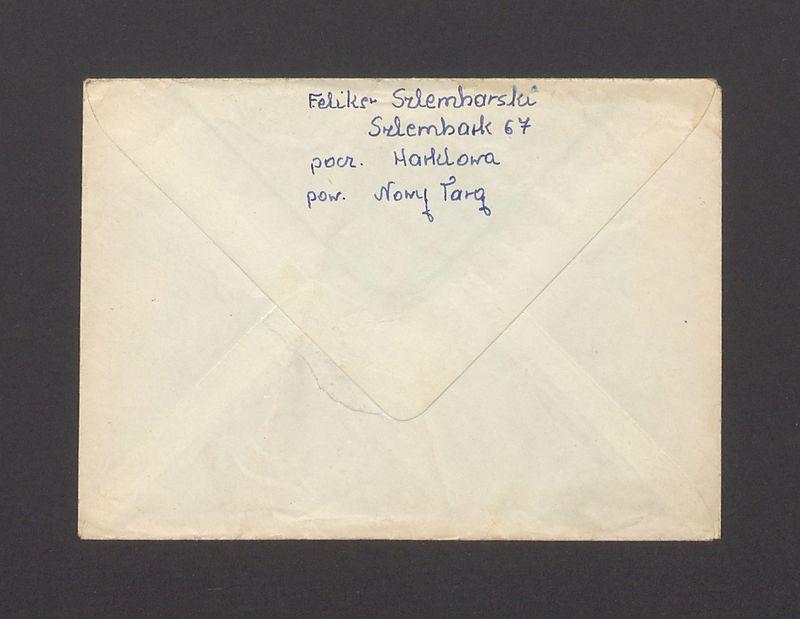 Feliks Szlembarski
Szlembark 67
pocz. Harklowa
pow. Nowy Targ